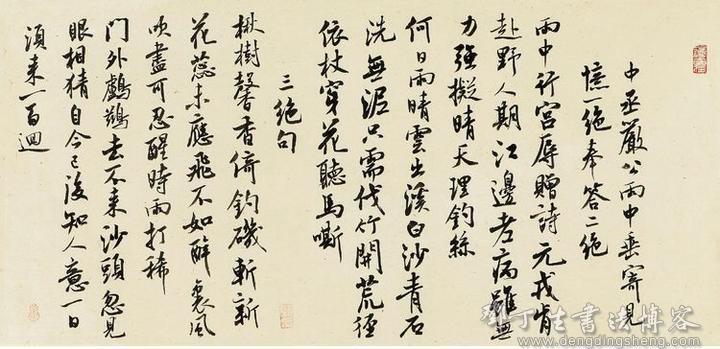 中丞嚴公雨中垂寄見
憶一絕奉答二絕
雨中行宮辱贈詩元戎肯
赴野人期江邊老病雖無
力強擬晴天理釣絲
何日雨晴雲出溪白沙青石
洗無泥只需伐竹開荒徑
依杖穿花聽馬嘶
三絕句
楸樹馨香倚釣磯斬新
花蕊未應飛不如醉裏風
吹盡可忍醒時雨打稀
門外鸕鶿去不來沙頭忽見
眼相猜自今已後知人意一日
須來一百迴
邓丁生書法博客
www.dengdingsheng.com